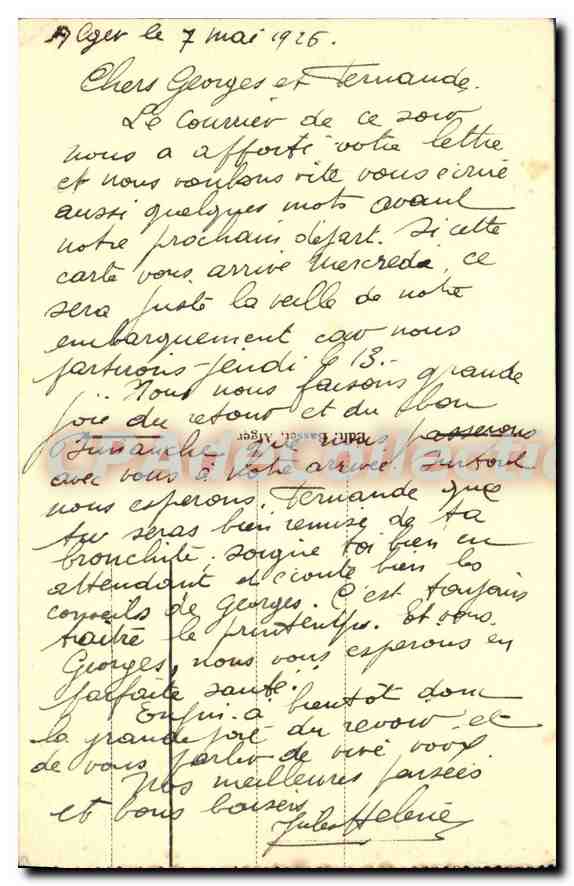 Alger le 7 mai 1926.
Chers Georges et Fernande.
Le Courrier de ce soir
nous a apporté votre lettre
et nous voulons vite vous écrire
aussi quelques mots avant
notre prochain départ. Si cette
carte vous arrive Mercredi, ce
sera juste la veille de notre
embarquement car nous
partirons jeudi le 13.-
Nous nous faisons grande
joie du retour et du bon
Dimanche que nous passerons
Edit. Basset, Alger
avec vous à notre arrivée. Surtout
nous esperons, Fernande que
tu seras bien remise de ta
bronchite, soigne toi bien en
attendant et écoute bien les
conseils de Georges. C'est toujours
traitre le printemps. Et vous,
Georges, nous vous esperons en
parfaite santé.
Enfin à bientôt donc
la grande joie du revoir et
de vous parler de vive voix
Nos meilleures pensées
et bons baisers
Jules Helene